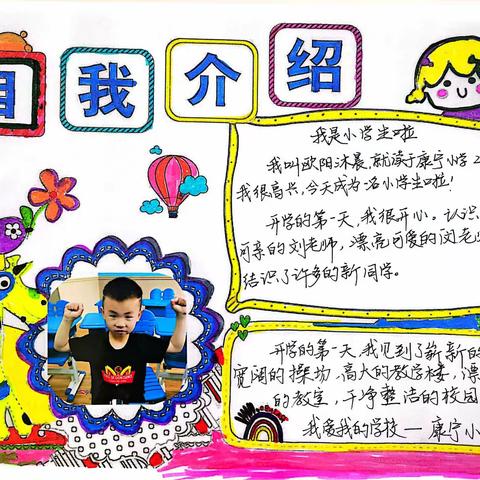 自我介绍
我是小学生啦
我叫欧阳沐晨,就读于康宁小学2
我很高兴,今天成为一名小学生啦!
开学的第一天,我很开心。认识
可亲的刘老师,漂亮可爱的闵老
结识了许多的新同学。
开学的第一天,我见到了崭新的
宽阔的操场,高大的教学楼,漂
的教室,干净整洁的校园
我爱我的学校——康宁小